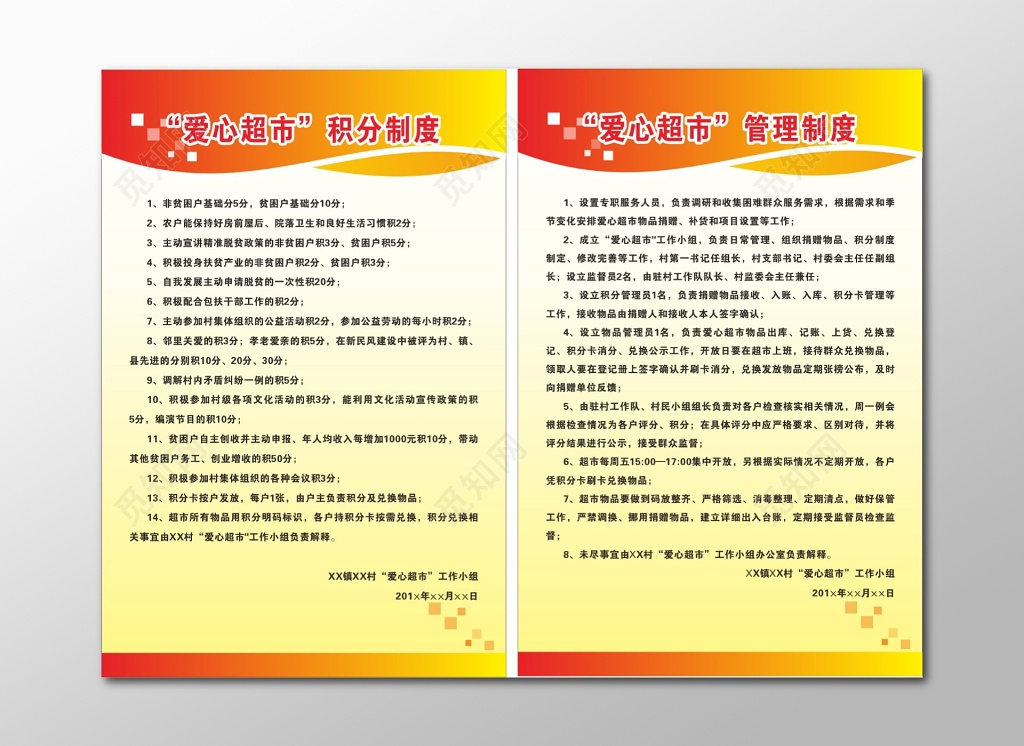 “爱心超市”积分制度
1、非贫困户基础分5分，贫困户基础分10分；
2、农户能保持好房前屋后、院落卫生和良好生活习惯积2分；
3、主动宣讲精准脱贫政策的非贫困户积3分、贫困户积5分；
4、积极投身扶贫产业的非贫困户积2分、贫困户积3分；
5、自我发展主动申请脱贫的一次性积20分；
6、积极配合包扶干部工作的积2分；
7、主动参加村集体组织的公益活动积2分，参加公益劳动的每小时积2分；
8、邻里关爱的积3分；孝老爱亲的积5分，在新民风建设中被评为村、镇、
县先进的分别积10分、20分、30分；
9、调解村内矛盾纠纷一例的积5分；
10、积极参加村级各项文化活动的积3分，能利用文化活动宣传政策的积
5分，编演节目的积10分；
11、贫困户自主创收并主动申报、年人均收入每增加1000元积10分，带动
其他贫困户务工、创业增收的积50分；
12、积极参加村集体组织的各种会议积3分；
13、积分卡按户发放，每户1张，由户主负责积分及兑换物品；
14、超市所有物品用积分明码标识，各户持积分卡按需兑换，积分兑换相
关事宜由XX村“爱心超市"工作小组负责解释。
XX镇XX村“爱心超市”工作小组
201×年××月××日
“爱心超市”管理制度
1、设置专职服务人员，负责调研和收集困难群众服务需求，根据需求和季
节变化安排爱心超市物品捐赠、补货和项目设置等工作；
2、成立“爱心超市"工作小组，负责日常管理、组织捐赠物品、积分制度
制定、修改完善等工作，村第一书记任组长，村支部书记、村委会主任任副组
长；设立监督员2名，由驻村工作队队长、村监委会主任兼任；
3、设立积分管理员1名，负责捐赠物品接收、入账、入库、积分卡管理等
工作，接收物品由捐赠人和接收人本人签字确认；
4、设立物品管理员1名，负责爱心超市物品出库、记账、上货、兑换登
记、积分卡消分、兑换公示工作，开放日要在超市上班，接待群众兑换物品，
领取人要在登记册上签字确认并刷卡消分，兑换发放物品定期张榜公布，及时
向捐赠单位反馈；
5、由驻村工作队、村民小组组长负责对各户检查核实相关情况，周一例会
根据检查情况为各户评分、积分；在具体评分中应严格要求、区别对待，并将
评分结果进行公示，接受群众监督；
6、超市每周五15:00—17:00集中开放，另根据实际情况不定期开放，各户
凭积分卡刷卡兑换物品；
7、超市物品要做到码放整齐、严格筛选、消毒整理、定期清点，做好保管
工作，严禁调换、挪用捐赠物品，建立详细出入台账，定期接受监督员检查监
督；
8、未尽事宜由XX村“爱心超市”工作小组办公室负责解释。
XX镇XX村“爱心超市”工作小组
201×年××月××日
觅知网
觅知网
觅知网
觅知网
觅知网
觅知网